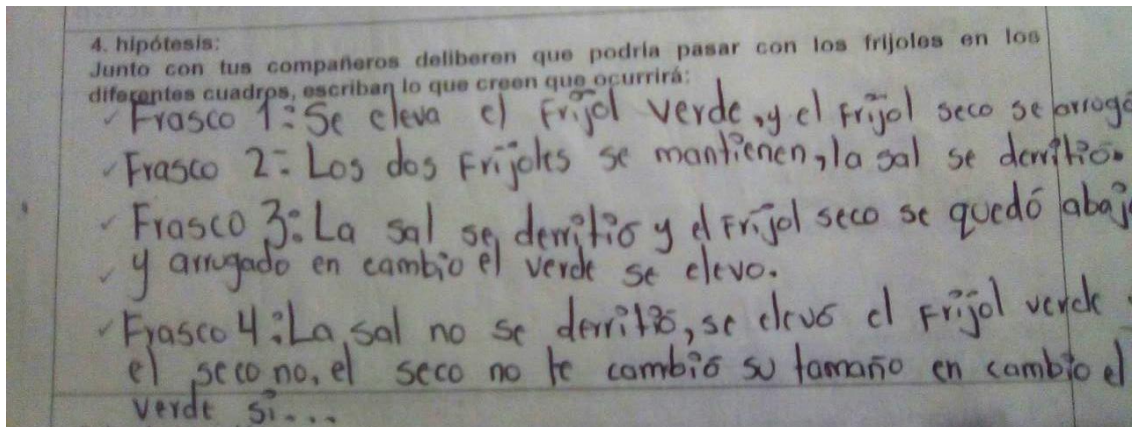 4. hipótesis:
Junto con tus compañeros deliberen que podría pasar con los frijoles en los
diferentes cuadros, escriban lo que creen que ocurrirá:
Frasco 1: Se eleva el Frijol verde, y el Frijol seco se arrogó
Frasco 2: Los dos Frijoles se mantienen, la sal se derritió.
Frasco 3: La sal se derritió y el Frijol seco se quedó abajo
y arrugado en cambio el verde se elevo.
Frasco 4: La sal no se derritió, se elevó el Frijol verde
el seco no, el seco no le cambió su tamaño en cambio el
verde si...